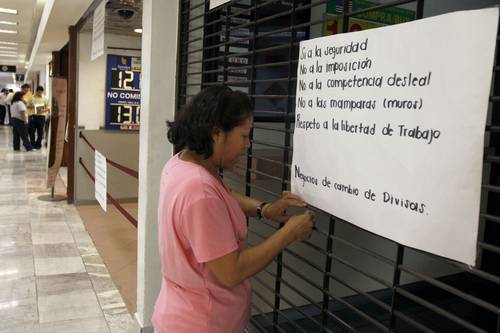 12
NO COMI
13
Si a la seguridad
No a la imposición
No a la competencia desleal
No a las mamparas (muros)
Respeto a la libertad de Trabajo
Negocios de cambio de Divisas.